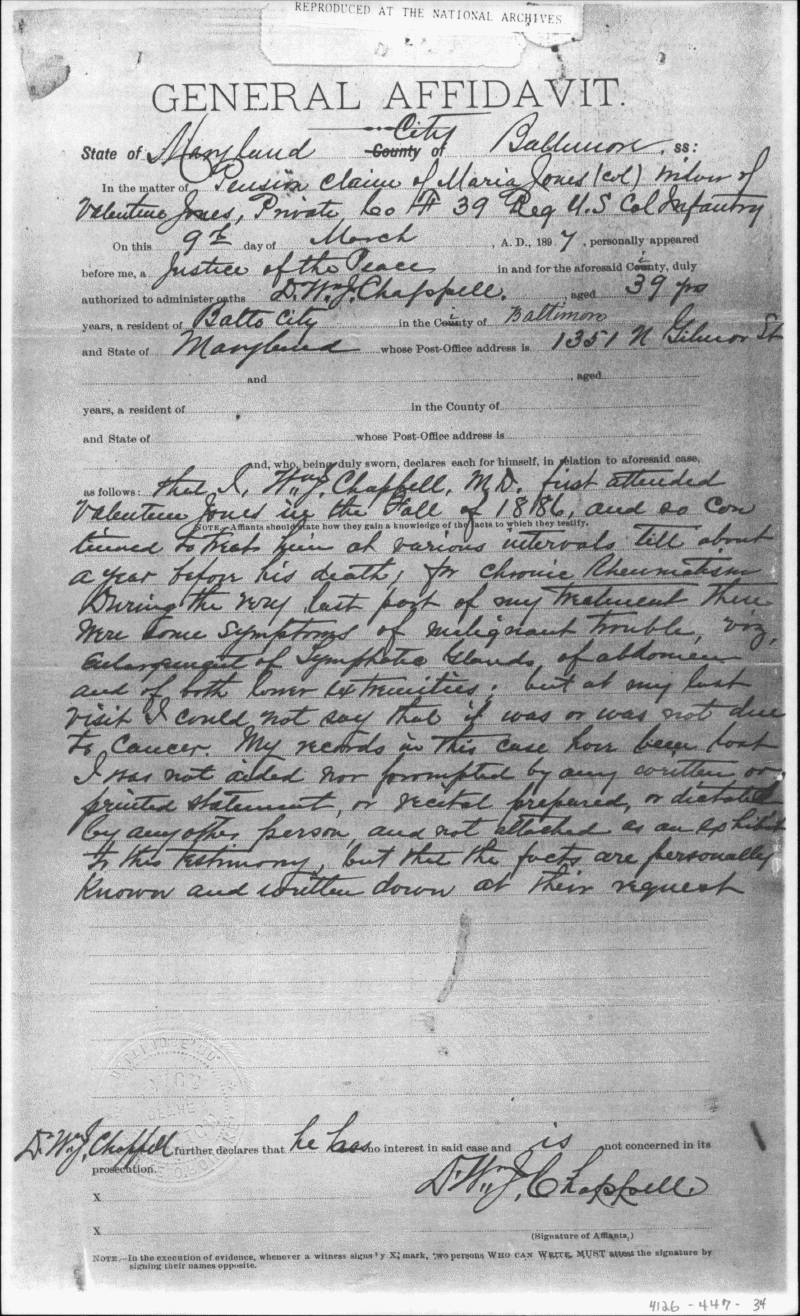 REPRODUCED AT THE NATIONAL ARCHIVES
GENERAL AFFIDAVIT.
State of Maryland County City of Baltimore, ss:
In the matter of Pension claim of Maria Jones (col) widow of
Valentine Jones, Private, Co H 39 Reg U.S Col Infantry
On this 9th day of March, A. D., 1897, personally appeared
before me, a Justice of the Peace in and for the aforesaid County, duly
authorized to administer oaths Dr. Wm J. Chappell. aged 39 yrs
years, a resident of Balto City in the County of Baltimore
and State of Maryland whose Post-Office address is 1351 N Gilmor St
and , aged
years, a resident of in the County of
and State of whose Post-Office address is
and, who, being duly sworn, declares each for himself, in relation to aforesaid case,
as follows: that I, Wm J. Chappell, M.D. first attended
Valentine Jones in the Fall of 18186, and so con
NOTE.—Affiants should state how they gain a knowledge of the facts to which they testify.
tinued to treat him at various intervals till about
a year before his death, for chronic Rheumatism
During the very last part of my treatment there
were some symptoms of malignant trouble, viz,
enlargement of Lymphatic Glands, of abdomen
and of both lower extremities; but at my last
visit I could not say that it was or was not due
to Cancer. My records in this case have been lost
I was not aided nor prompted by any written or
printed statement, or recital prepared, or dictated
by any other person, and not attached as an exhibit
to this testimony, but that the facts are personally
known and written down at their request
Dr. Wm J. Chappell further declares that he has no interest in said case and is not concerned in its
prosecution.
Dr. Wm J. Chappell
X
X
(Signature of Affiants.)
NOTE.—In the execution of evidence, whenever a witness signs by X mark, two persons WHO CAN WRITE MUST attest the signature by
signing their names opposite.
4126-447-34